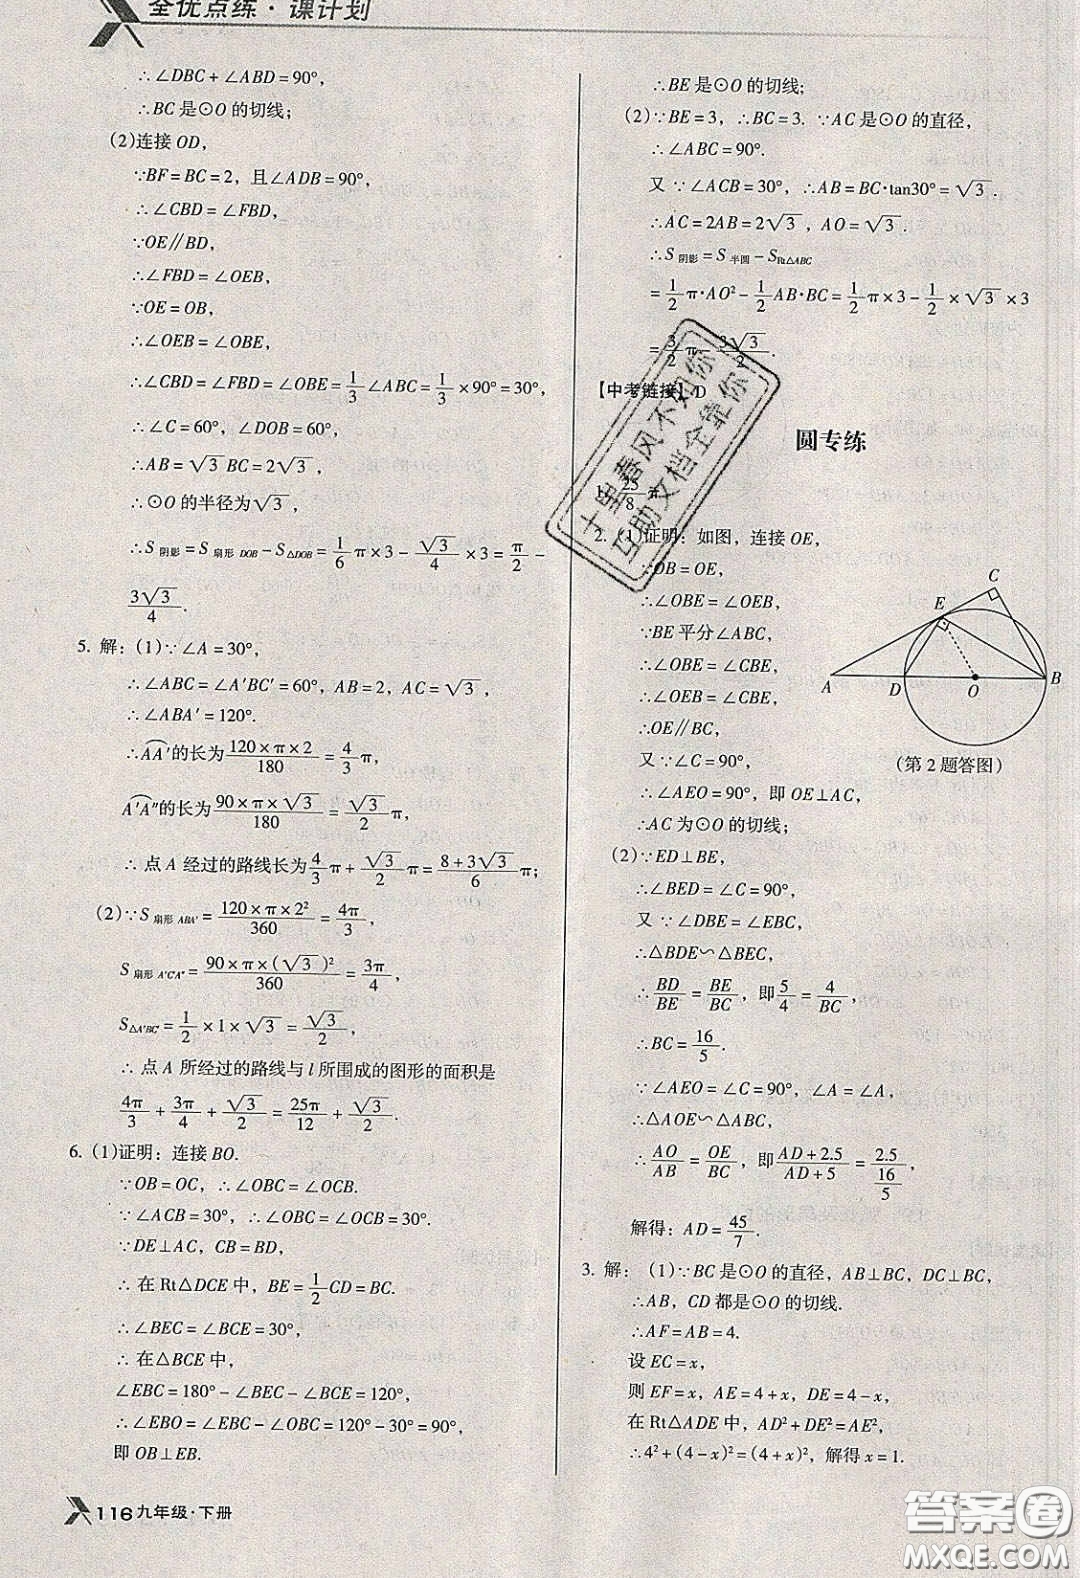 全优点练·课计划
∴∠DBC+∠ABD=90°,
∴BC是⊙O的切线;
(2)连接OD,
∵BF=BC=2,且∠ADB=90°,
∴∠CBD=∠FBD,
∵OE∥BD,
∴∠FBD=∠OEB,
∵OE=OB,
∴∠OEB=∠OBE,
∴∠CBD=∠FBD=∠OBE=1/3∠ABC=1/3×90°=30°,
∴∠C=60°,∠DOB=60°,
∴AB=√3BC=2√3,
∴⊙O的半径为√3,
∴S阴影=S扇形DOB-S△DOB=1/6π×3-√3/4×3=π/2-
3√3/4.
5. 解:(1)∵∠A=30°,
∴∠ABC=∠A′BC′=60°,AB=2,AC=√3,
∴∠ABA′=120°.
∴AA′的长为120×π×2/180=4/3π,
A′A″的长为90×π×√3/180=√3/2π,
∴点A经过的路线长为4/3π+√3/2π=8+3√3/6π;
(2)∵S扇形ABA′=120×π×2²/360=4π/3,
S扇形A′C′A″=90×π×(√3)²/360=3π/4,
S△A′BC′=1/2×1×√3=√3/2,
∴点A所经过的路线与l所围成的图形的面积是
4π/3+3π/4+√3/2=25π/12+√3/2.
6. (1)证明:连接BO.
∵OB=OC,∴∠OBC=∠OCB.
∵∠ACB=30°,∴∠OBC=∠OCB=30°.
∵DE⊥AC,CB=BD,
∴在Rt△DCE中,BE=1/2CD=BC.
∴∠BEC=∠BCE=30°,
∴在△BCE中,
∠EBC=180°-∠BEC-∠BCE=120°,
∴∠EBO=∠EBC-∠OBC=120°-30°=90°,
即OB⊥EB.
∴BE是⊙O的切线;
(2)∵BE=3,∴BC=3. ∵AC是⊙O的直径,
∴∠ABC=90°.
又∵∠ACB=30°,∴AB=BC·tan30°=√3.
∴AC=2AB=2√3,AO=√3.
∴S阴影=S半圆-SRt△ABC
=1/2π·AO²-1/2AB·BC=1/2π×3-1/2×√3×3
=3/2π-3√3/2.
【中考链接】D
圆专练
1. 25/8π
2. (1)证明:如图,连接OE,
∵OB=OE,
∴∠OBE=∠OEB,
∵BE平分∠ABC,
∴∠OBE=∠CBE,
∴∠OEB=∠CBE,
∴OE∥BC,
又∵∠C=90°,
∴∠AEO=90°,即OE⊥AC,
∴AC为⊙O的切线;
C
E
A
D
O
B
(第2题答图)
(2)∵ED⊥BE,
∴∠BED=∠C=90°,
又∵∠DBE=∠EBC,
∴△BDE∽△BEC,
∴BD/BE=BE/BC,即5/4=4/BC,
∴BC=16/5.
∵∠AEO=∠C=90°,∠A=∠A,
∴△AOE∽△ABC,
∴AO/AB=OE/BC,即AD+2.5/AD+5=2.5/(16/5),
解得:AD=45/7.
3. 解:(1)∵BC是⊙O的直径,AB⊥BC,DC⊥BC,
∴AB,CD都是⊙O的切线.
∴AF=AB=4.
设EC=x,
则EF=x,AE=4+x,DE=4-x,
在Rt△ADE中,AD²+DE²=AE²,
∴4²+(4-x)²=(4+x)²,解得x=1.
116九年级·下册
十里春风不如你
互助文档全靠你
答案圈
MXQE.COM